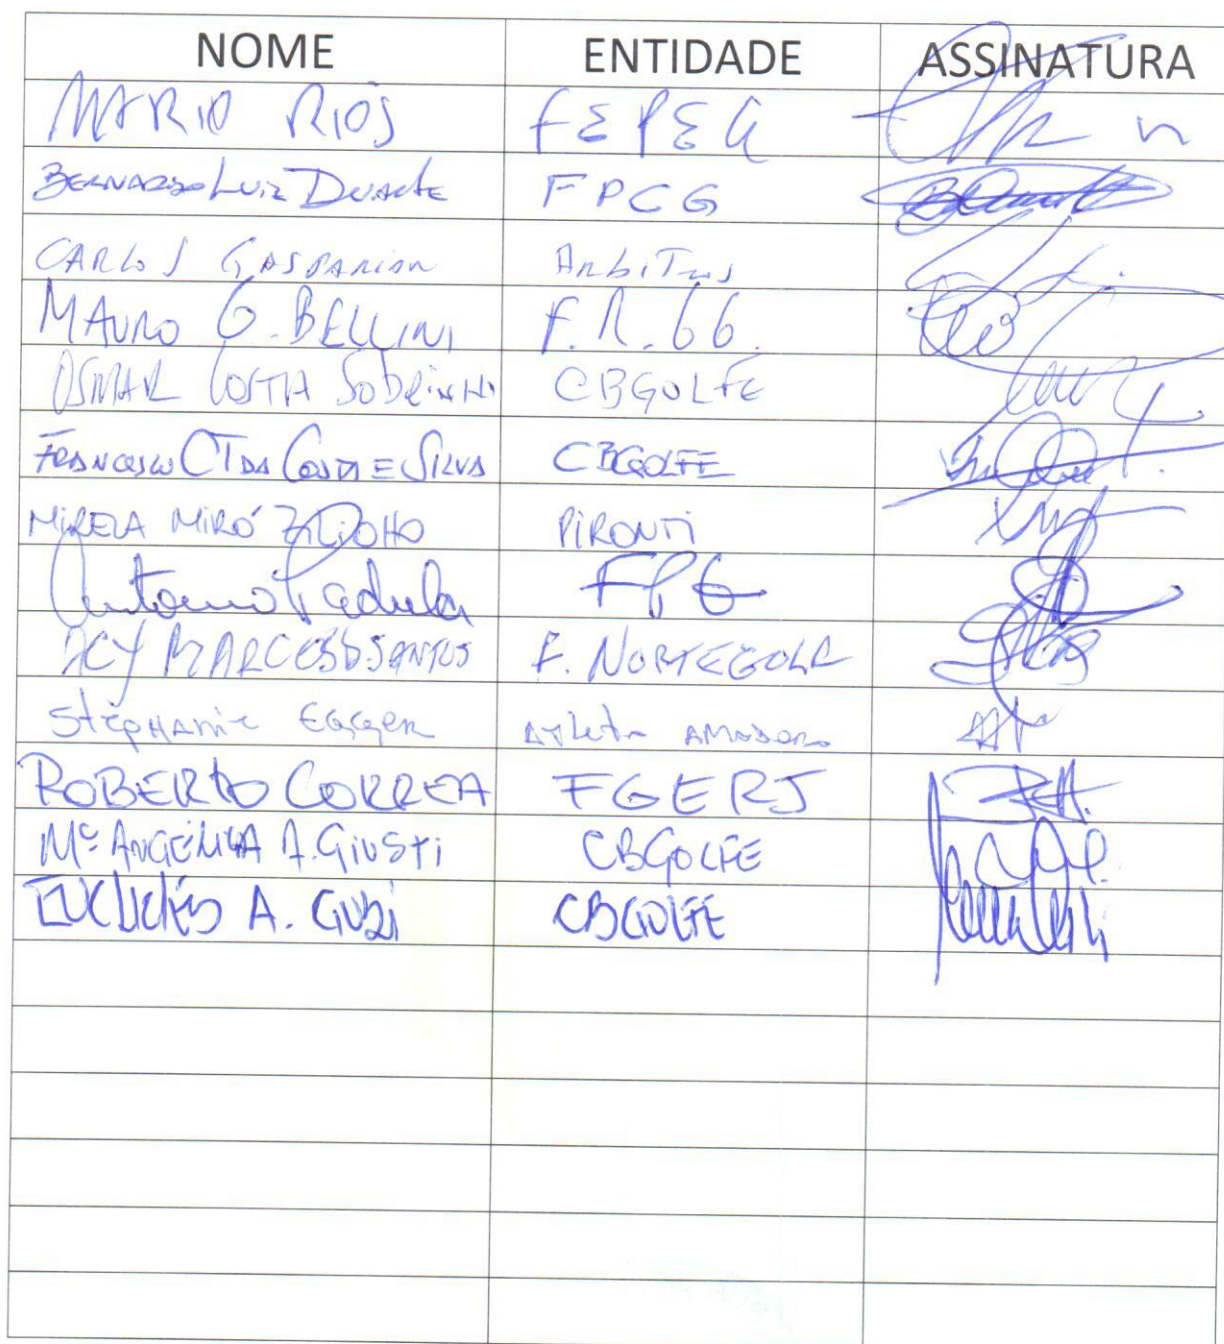 NOME ENTIDADE ASSINATURA
MARIO RIOS FEPEG
BERNARDO LUIZ DUARTE FPCG
CARLOS GASPARIAN ARBITROS
MAURO G. BELLINI F.R.GG.
OSMAR COSTA SOBRINHO CBGOLFE
FRANCISCO CT DA COSTA E SILVA CBGOLFE
MIRELA MIRÓ ZILIOTTO PIRONTI
Antonio Padula FPG
ACY MARCOS SANTOS F. NORTEGOLF
Stephanie Egger Atleta AMADORA
ROBERTO CORREA FGERJ
Mª ANGÉLICA A. GIUSTI CBGOLFE
EUCLIDES A. GUSI CBGOLFE